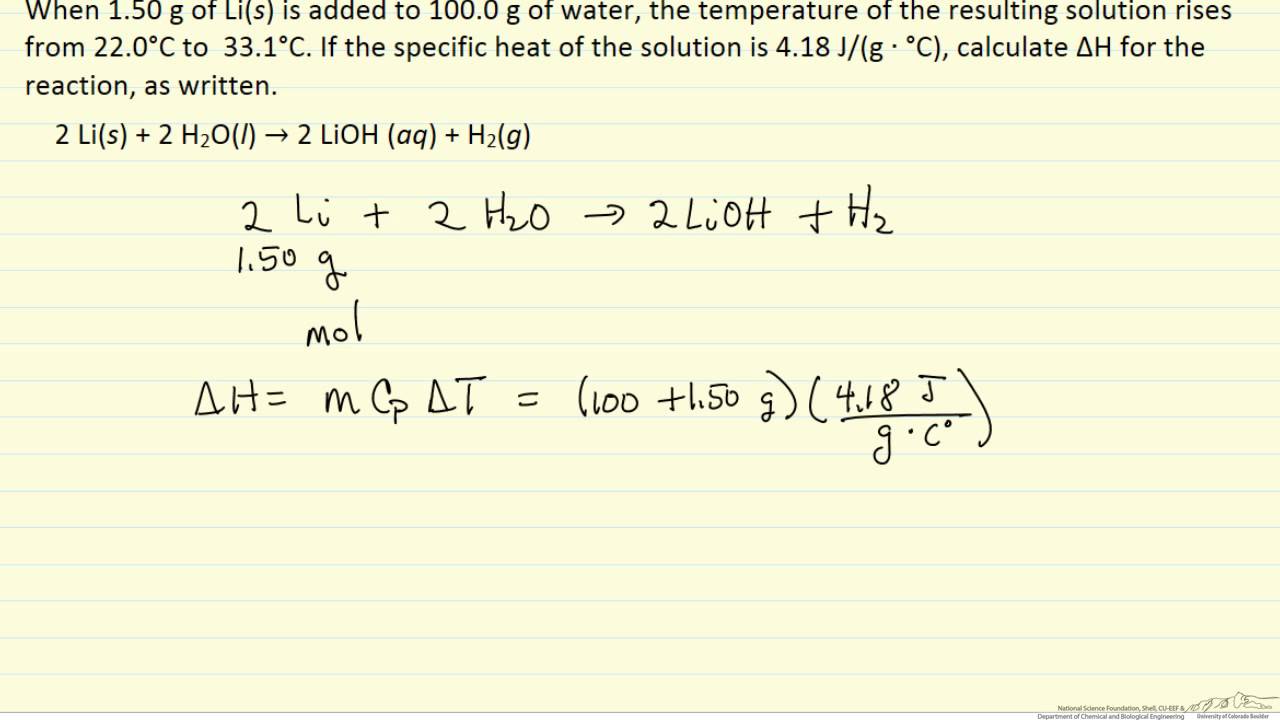 When 1.50 g of Li(s) is added to 100.0 g of water, the temperature of the resulting solution rises
from 22.0°C to 33.1°C. If the specific heat of the solution is 4.18 J/(g · °C), calculate ΔH for the
reaction, as written.
2 Li(s) + 2 H₂O(l) → 2 LiOH (aq) + H₂(g)
2 Li + 2 H₂O → 2 LiOH + H₂
1.50 g
mol
ΔH = m Cp ΔT = (100 + 1.50 g) (4.18 J / g · C°)
National Science Foundation, Shell, CU-EEF &
Department of Chemical and Biological Engineering University of Colorado Boulder